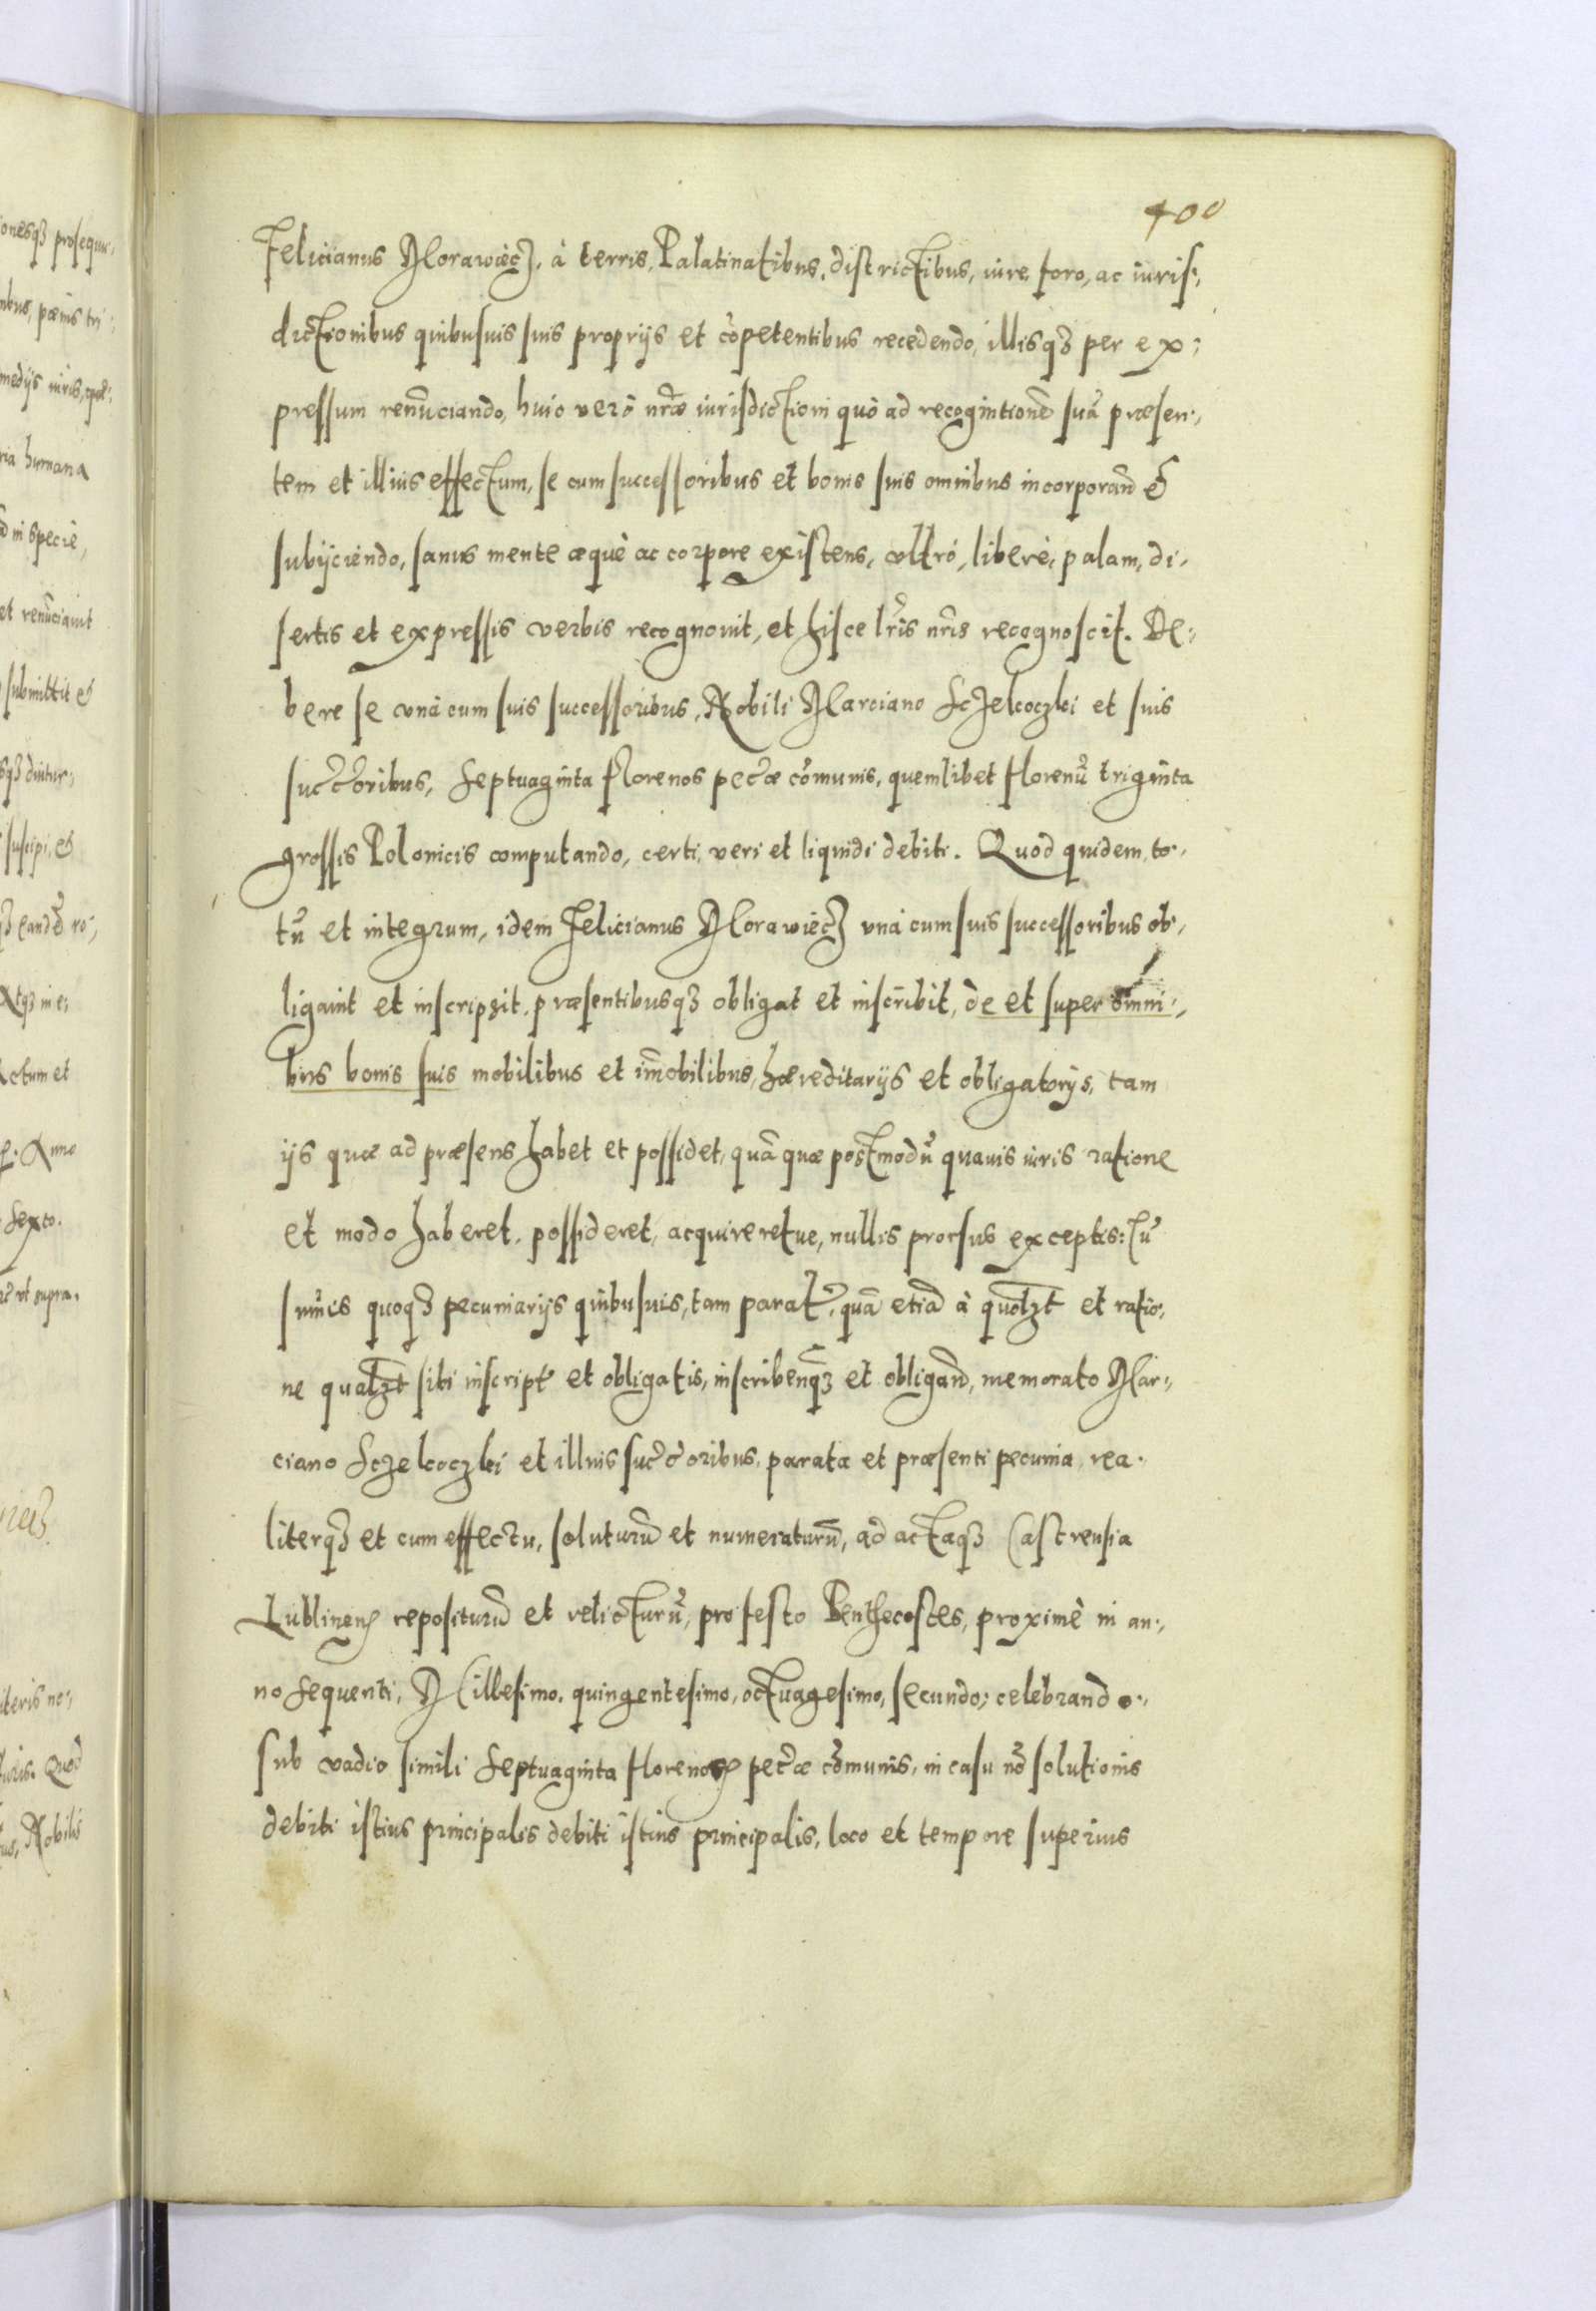 400
Felicianus Morawiecz, à terris, Palatinatibus, districtibus, iure, foro, ac iuris:,
dictionibus quibusuis suis proprijs et cōpetentibus recedendo, illisqꝫ per ex:,
pressum renūciando, huic verò nr̃æ iurisdictioni quò ad recognitionē suā præsen:,
tem et illius effectum, se cum successoribus et bonis suis omnibus incorporand̃ &
subijciendo, sanus mente æquè ac corpore existens, vltró, liberè, palam, di:,
sertis et expressis verbis recognouit, et hisce lr̃is nr̃is recognoscit. De:,
bere se vnà cum suis successoribus, Nobili Marciano Sczelcoczki et suis
succ̃oribus, Septuaginta florenos pec̃æ cōmunis, quemlibet florenū triginta
grossis Polonicis computando, certi, veri et liquidi debiti. Quod quidem, to:,
tū et integrum, idem Felicianus Morawiecz vnà cum suis successoribus ob:,
ligauit et inscripsit, præsentibusqꝫ obligat et inscribit, de et super omni:,
bus bonis suis mobilibus et im̃obilibus, hæreditarijs et obligatorijs, tam
ijs quæ ad præsens habet et possidet, quā quæ postmodū quauis iuris ratione
et modo haberet, possideret, acquireretue, nullis prorsus exceptis: Tū
sum̃is quoqꝫ pecuniarijs quibusuis, tam parat̃, quā etiā à quotzt et ratio:,
ne qualzt sibi inscript̃ et obligatis, inscribenꝗꝫ et obligand̃, memorato Mar:,
ciano Sczelcoczki et illius succ̃oribus, parata et præsenti pecunia, rea:
literqꝫ et cum effectu, soluturū et numeraturū, ad actaqꝫ Castrensia
Lublinenꝭ repositurū et relicturū, pro festo Penthecostes, proximè in an:,
no sequenti, Millesimo, quingentesimo, octuagesimo, secundo, celebrando:,
sub vadio simili Septuaginta florenoꝝ pec̃æ cōmunis, in casu nō solutionis
debiti istius principalis debiti istius principalis, loco et tempore superius